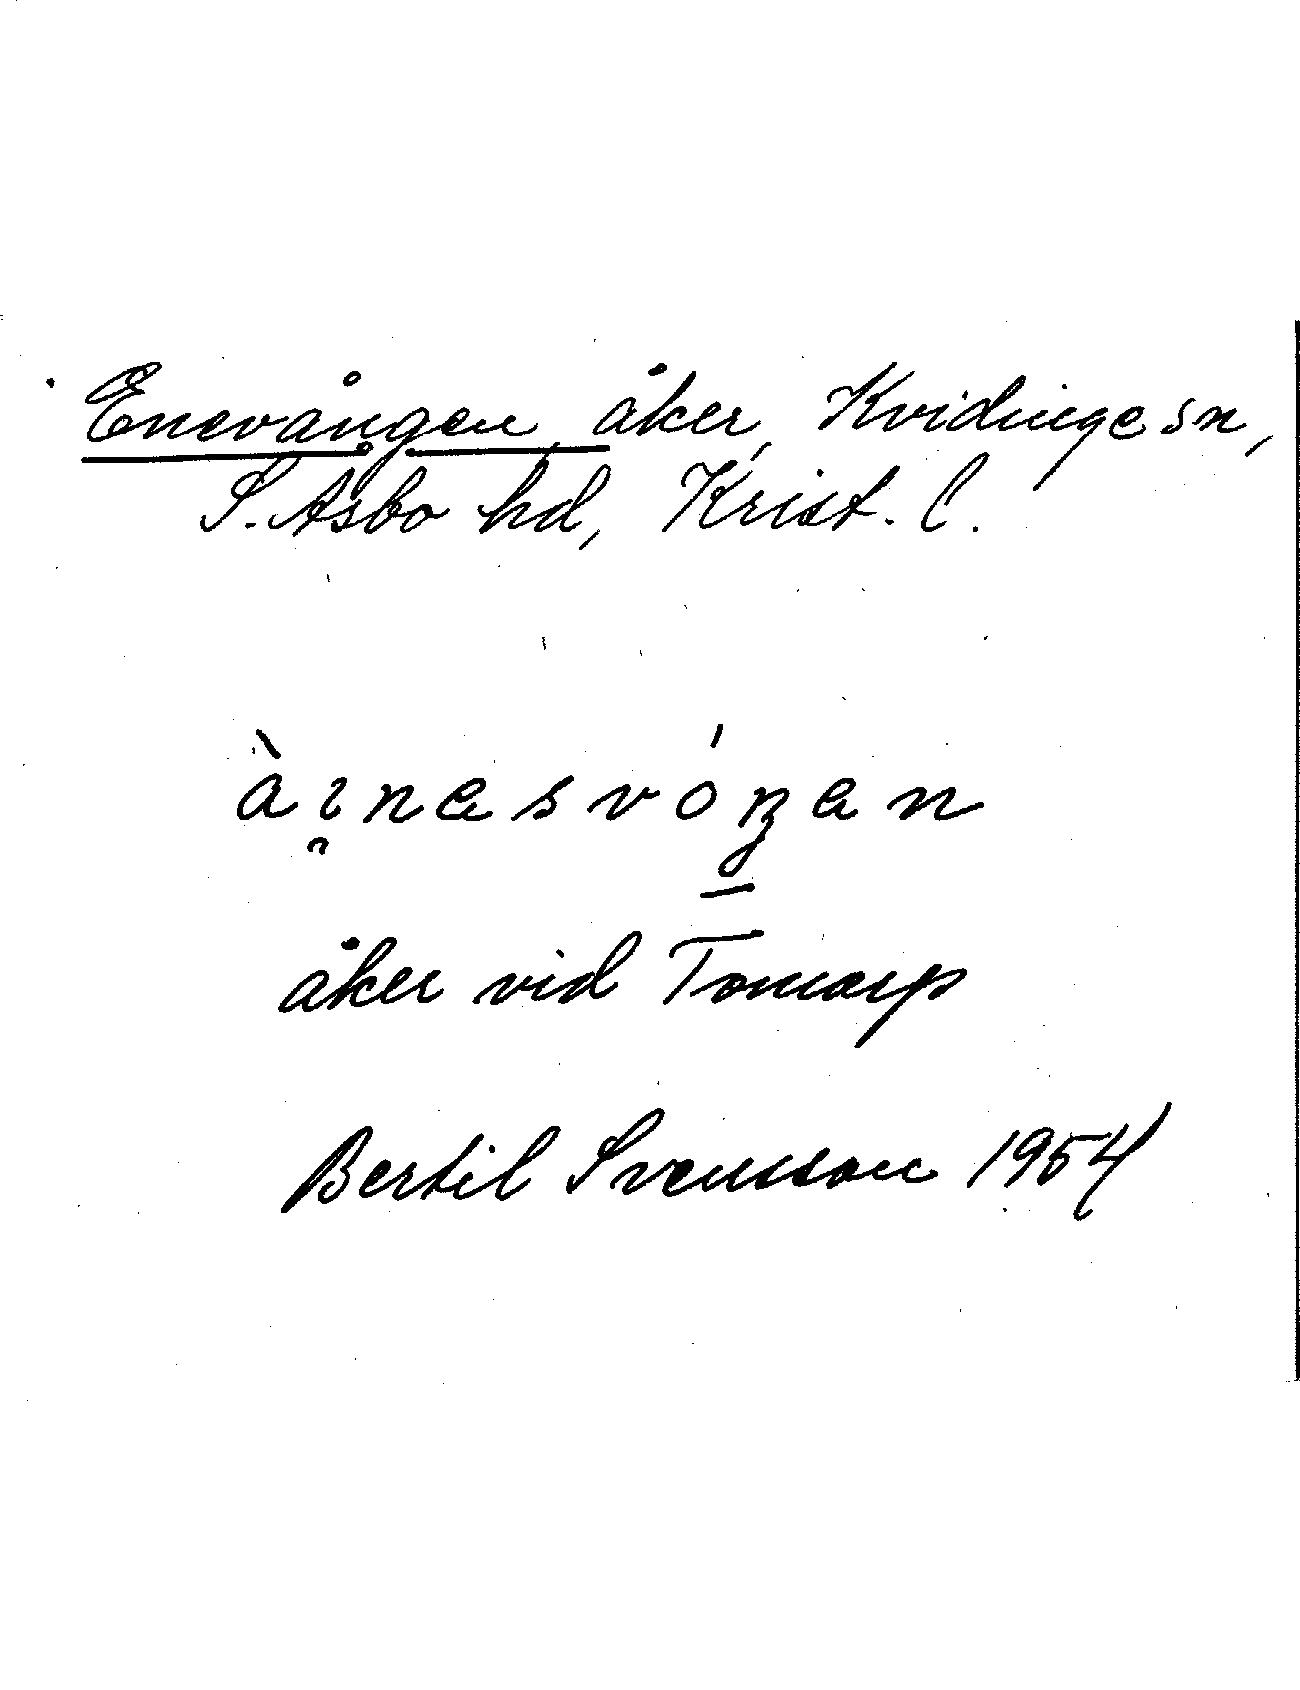 Enevången, åker, Kvidinge sn,
S. Åsbo hd, Krist. l.
åker vid Tomarp
Bertil Svensson 1954